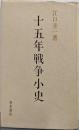 江口圭一著
十五年戦争小史
青木書店